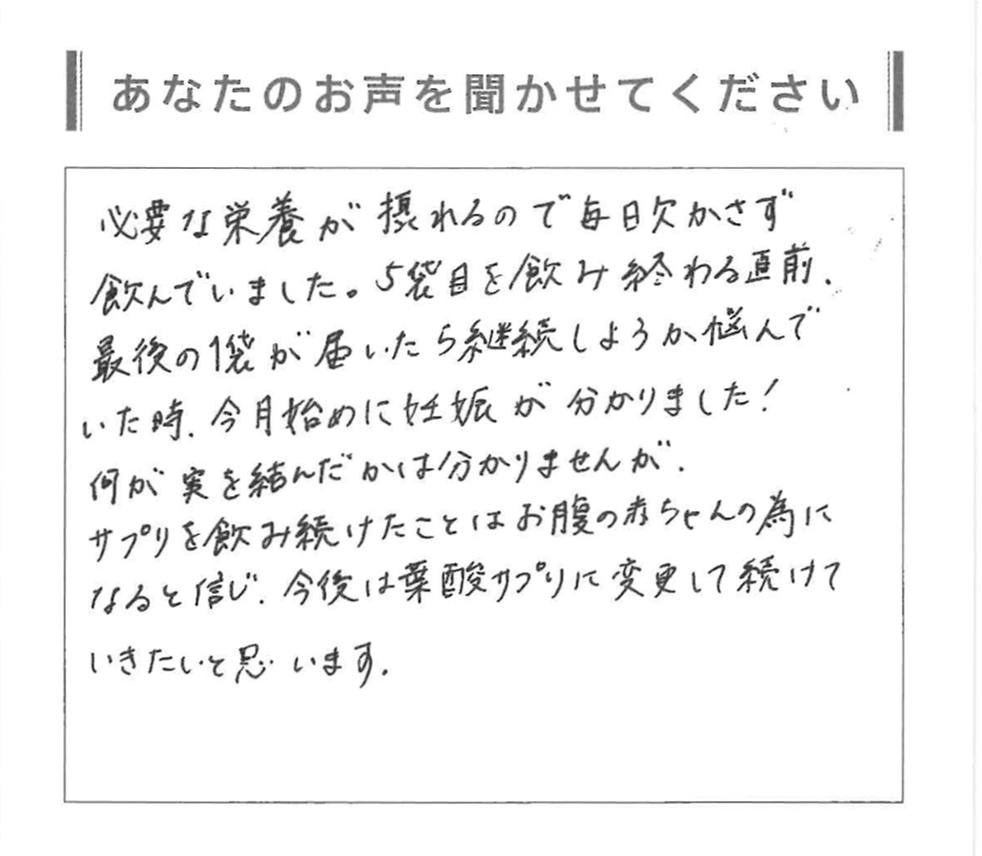 あなたのお声を聞かせてください
必要な栄養が摂れるので毎日欠かさず
飲んでいました。5袋目を飲み終わる直前、
最後の1袋が届いたら継続しようか悩んで
いた時、今月始めに妊娠が分かりました!
何が実を結んだかは分かりませんが、
サプリを飲み続けたことはお腹の赤ちゃんの為に
なると信じ、今後は葉酸サプリに変更して続けて
いきたいと思います。